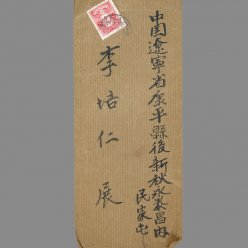 中国遼寧省康平縣後新秋永泰昌內
民家屯
李培仁 展